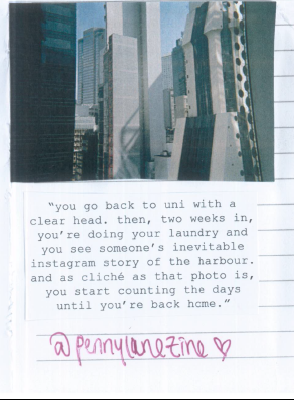 “you go back to uni with a
clear head. then, two weeks in,
you’re doing your laundry and
you see someone’s inevitable
instagram story of the harbour.
and as cliché as that photo is,
you start counting the days
until you’re back home.”
@pennylanezine ♡